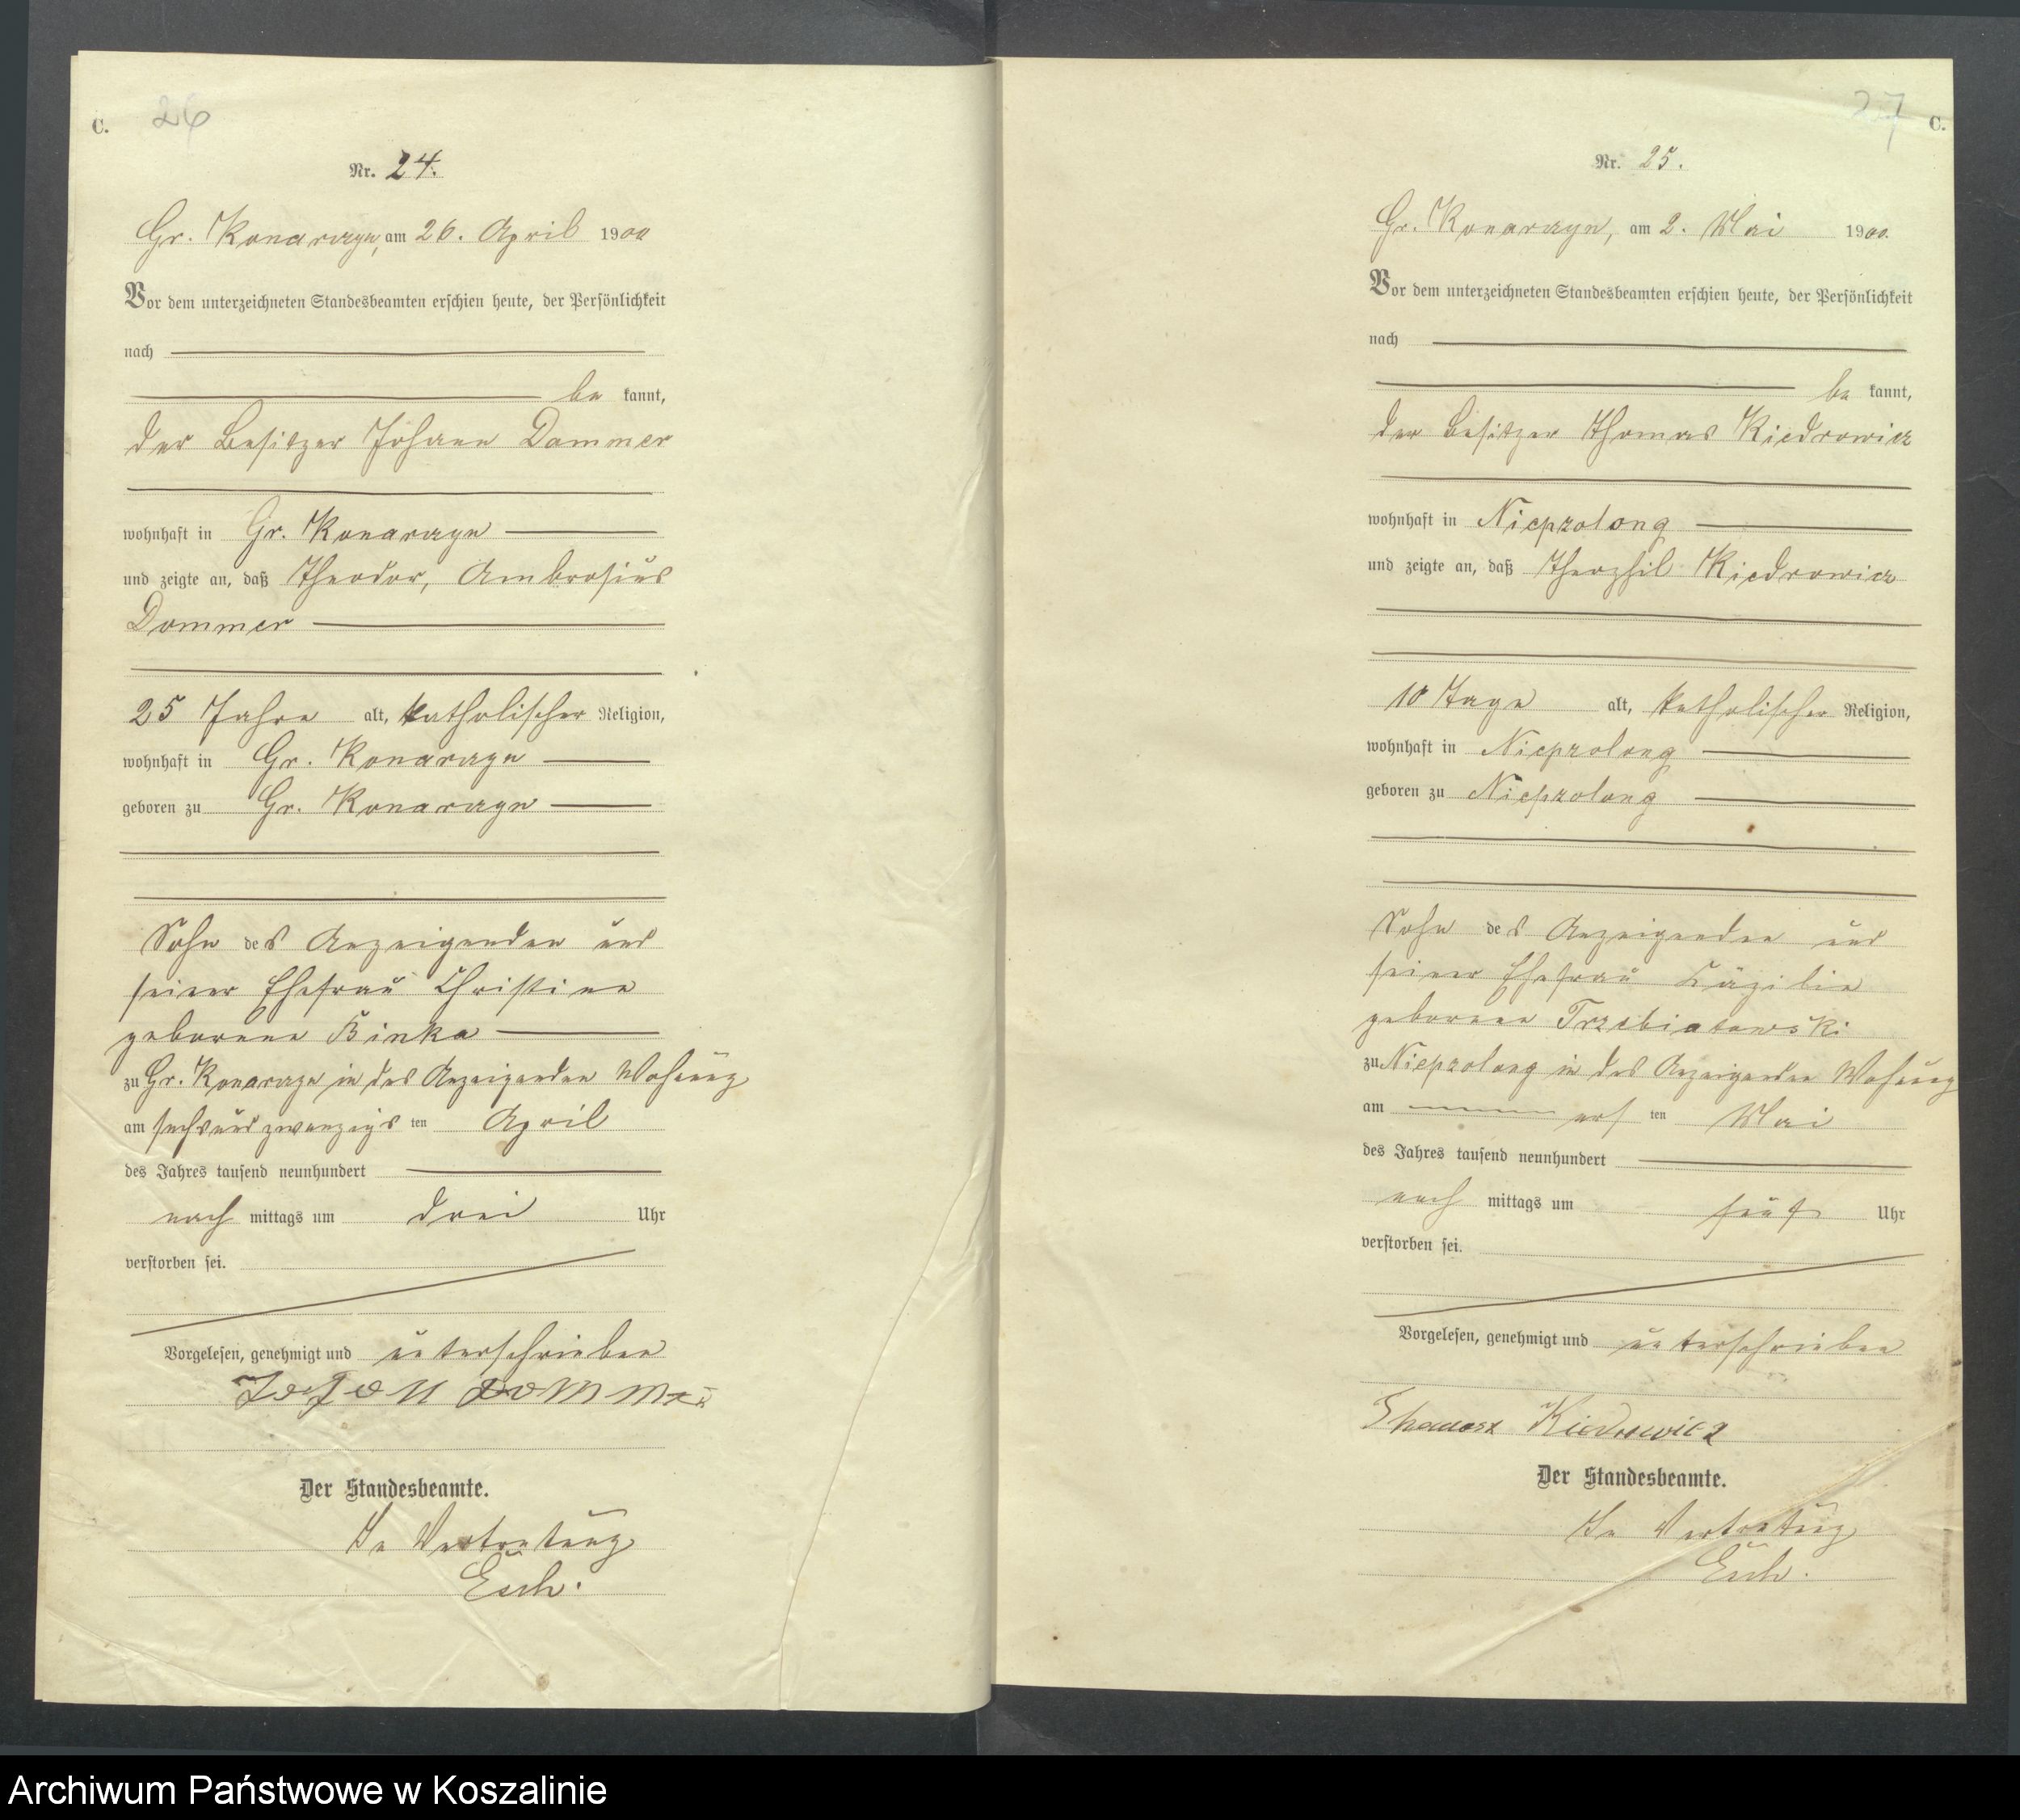 C.
26
Nr. 24.
Gr. Konarzyn, am 26. April 1900
Vor dem unterzeichneten Standesbeamten erschien heute, der Persönlichkeit
nach
be kannt,
der Besitzer Johann Dommer
wohnhaft in Gr. Konarzyn
und zeigte an, daß Theodor, Ambrosius
Dommer
25 Jahre alt, katholischer Religion,
wohnhaft in Gr. Konarzyn
geboren zu Gr. Konarzyn
Sohn des Anzeigenden und
seiner Ehefrau Christine
geborene Binka
zu Gr. Konarzyn in des Anzeigenden Wohnung
am sechsundzwanzigs ten April
des Jahres tausend neunhundert
nach mittags um drei Uhr
verstorben sei.
Vorgelesen, genehmigt und unterschrieben
Johan Dommer
Der Standesbeamte.
In Vertretung
Esch.
27
C.
Nr. 25.
Gr. Konarzyn, am 2. Mai 1900.
Vor dem unterzeichneten Standesbeamten erschien heute, der Persönlichkeit
nach
be kannt,
der Besitzer Thomas Kiedrowicz
wohnhaft in Niepzolong
und zeigte an, daß Theophil Kiedrowicz
10 Tage alt, katholischer Religion,
wohnhaft in Niepzolong
geboren zu Niepzolong
Sohn des Anzeigenden und
seiner Ehefrau Cäzilie
geborene Trzebiatowski
zu Niepzolong in des Anzeigenden Wohnung
am ers ten Mai
des Jahres tausend neunhundert
nach mittags um fünf Uhr
verstorben sei.
Vorgelesen, genehmigt und unterschrieben
Kiedrowicz
Der Standesbeamte.
In Vertretung
Esch.
Archiwum Państwowe w Koszalinie